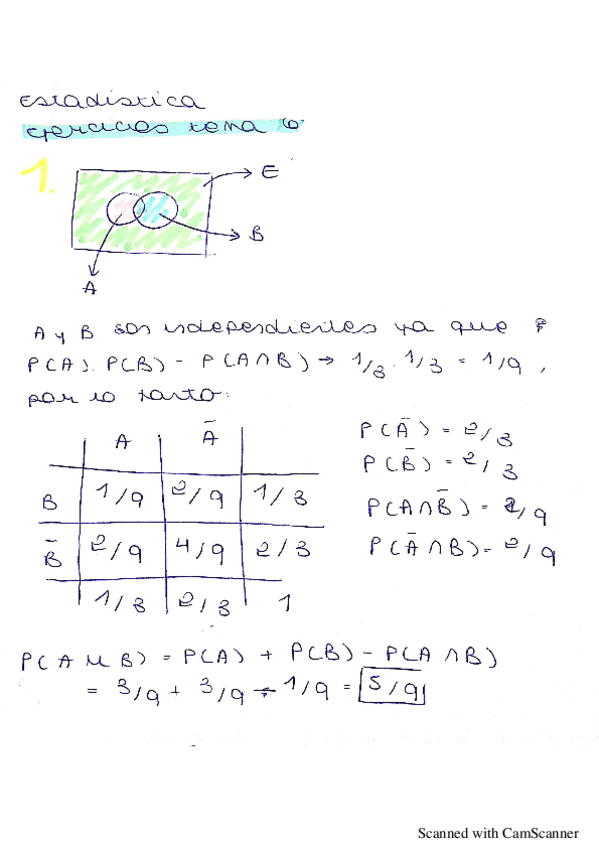 Estadística
ejercicios tema 6
1.
E
B
A
A y B son independientes ya que
P(A). P(B) - P(A∩B) → 1/3 . 1/3 = 1/9 ,
por lo tanto:
A Ā
B 1/9 2/9 1/3
B̄ 2/9 4/9 2/3
1/3 2/3 1
P(Ā) = 2/3
P(B̄) = 2/3
P(A∩B̄) = 2/9
P(Ā∩B) = 2/9
P(A ∪ B) = P(A) + P(B) - P(A∩B)
= 3/9 + 3/9 - 1/9 = 5/9
Scanned with CamScanner